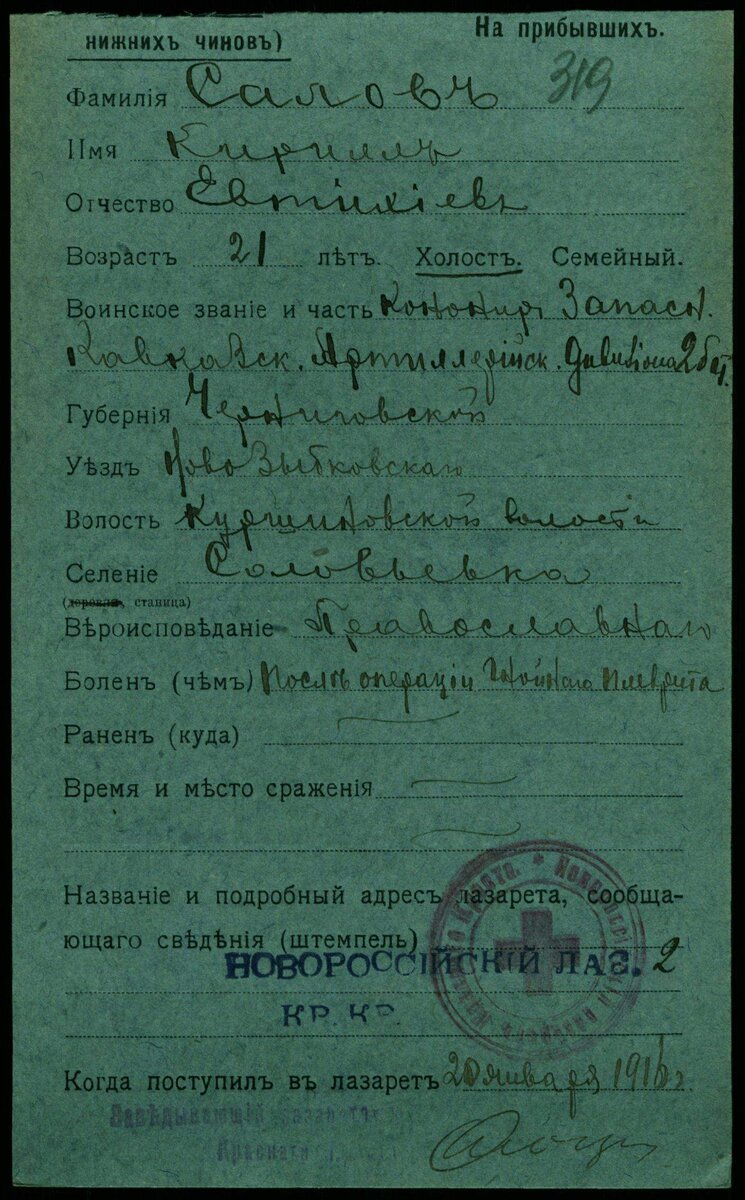 нижнихъ чиновъ)
На прибывшихъ.
319
Фамилія Саловъ
Имя Кириллъ
Отчество Евтихіевъ
Возрастъ 21 лѣтъ. Холостъ. Семейный.
Воинское званіе и часть Канониръ Запасн.
Кавказск. Артиллерійск. дивизіона 2 бат.
Губернія Черниговской
Уѣздъ НовоЗыбковскаго
Волость волости
Селеніе Соловьевка
(деревня, станица)
Вѣроисповѣданіе Православнаго
Боленъ (чѣмъ) Послѣ операціи гнойнаго плеврита
Раненъ (куда)
Время и мѣсто сраженія
Названіе и подробный адресъ лазарета, сообща-
ющаго свѣдѣнія (штемпель)
НОВОРОССІЙСКІЙ ЛАЗ. 2
КР. КР.
Когда поступилъ въ лазаретъ 20 января 1916 г
Завѣдывающій лазаретомъ
Краснаго